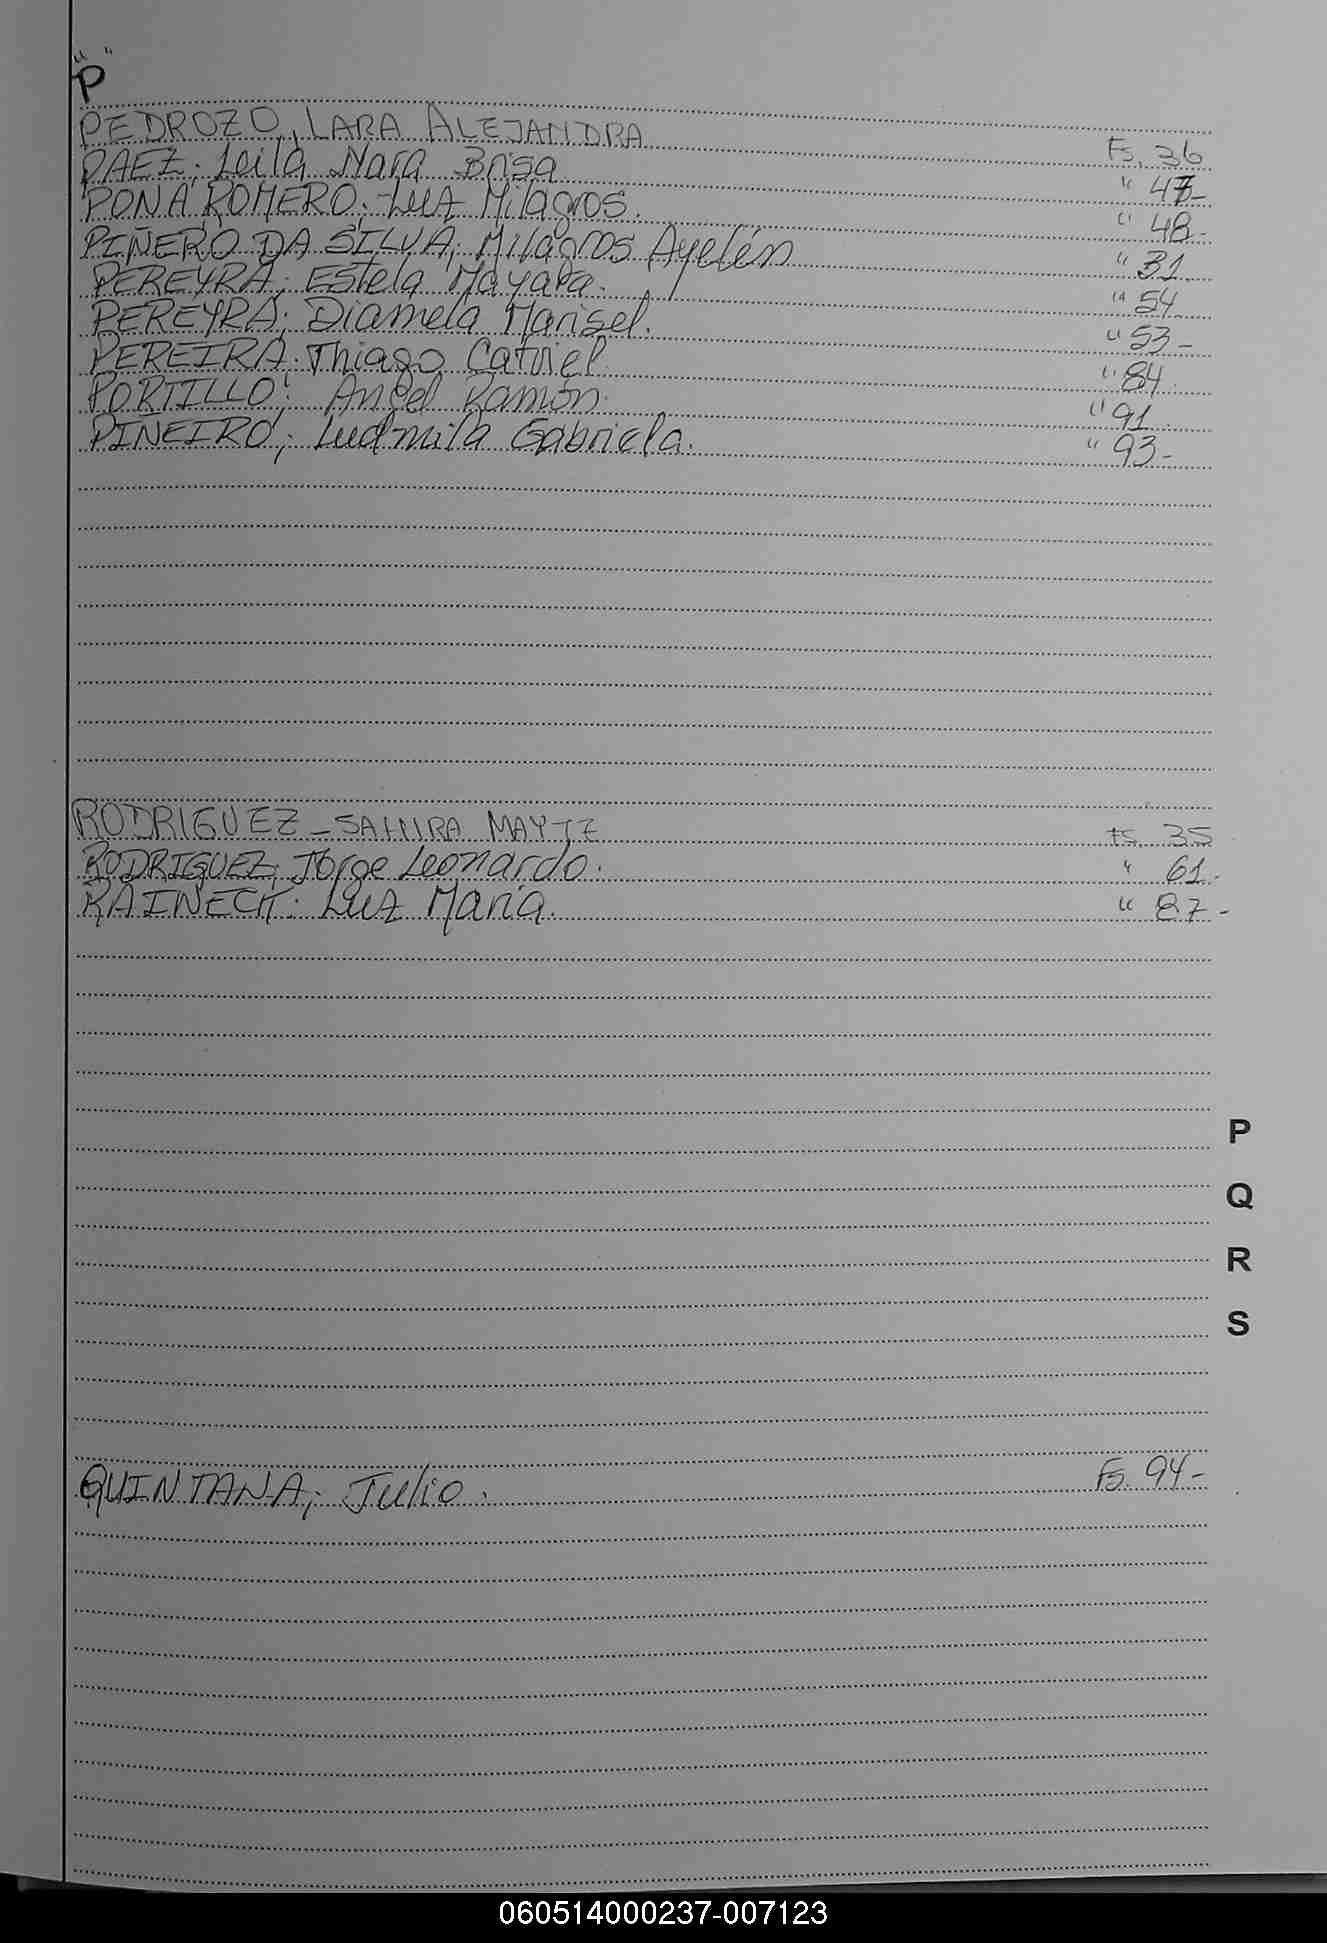 "P"
PEDROZO, LARA ALEJANDRA Fs. 36
PAEZ; Leila Nara Brisa " 47-
PONA ROMERO; Luz Milagros. " 48-
PIÑERO DA SILVA; Milagros Ayelén " 31
PEREYRA; Estela Mayara. " 54
PEREYRA; Diamela Marisel. " 53-
PEREIRA; Thiago Catriel " 84
PORTILLO; Angel Ramón. " 91
PINEIRO; Ludmila Gabriela. " 93-
RODRIGUEZ - SAHIRA Fs. 35
RODRIGUEZ; Jorge Leonardo. " 61-
RAINECK; Luz María. " 87-
P
Q
R
S
QUINTANA; Julio. Fs. 94-
060514000237-007123